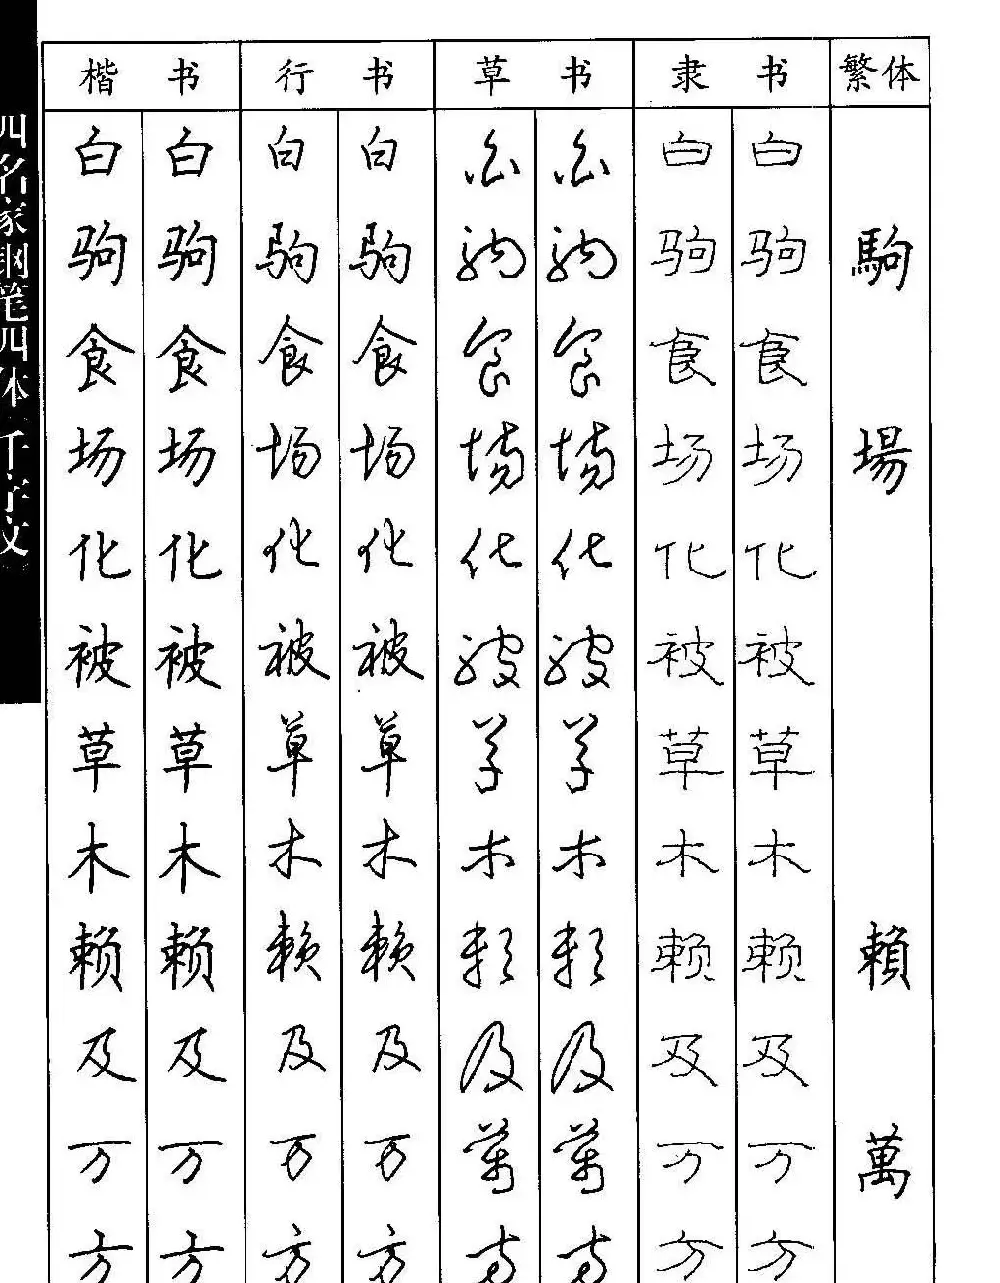 四名家钢笔四体千字文
楷书 行书 草书 隶书 繁体
白 白 白 白 白 白 白 白
驹 驹 驹 驹 驹 驹 驹 驹 駒
食 食 食 食 食 食 食 食
场 场 场 场 场 场 场 场 場
化 化 化 化 化 化 化 化
被 被 被 被 被 被 被 被
草 草 草 草 草 草 草 草
木 木 木 木 木 木 木 木
赖 赖 赖 赖 赖 赖 赖 赖 賴
及 及 及 及 及 及 及 及
万 万 万 万 萬 萬 万 万 萬
方 方 方 方 方 方 方 方